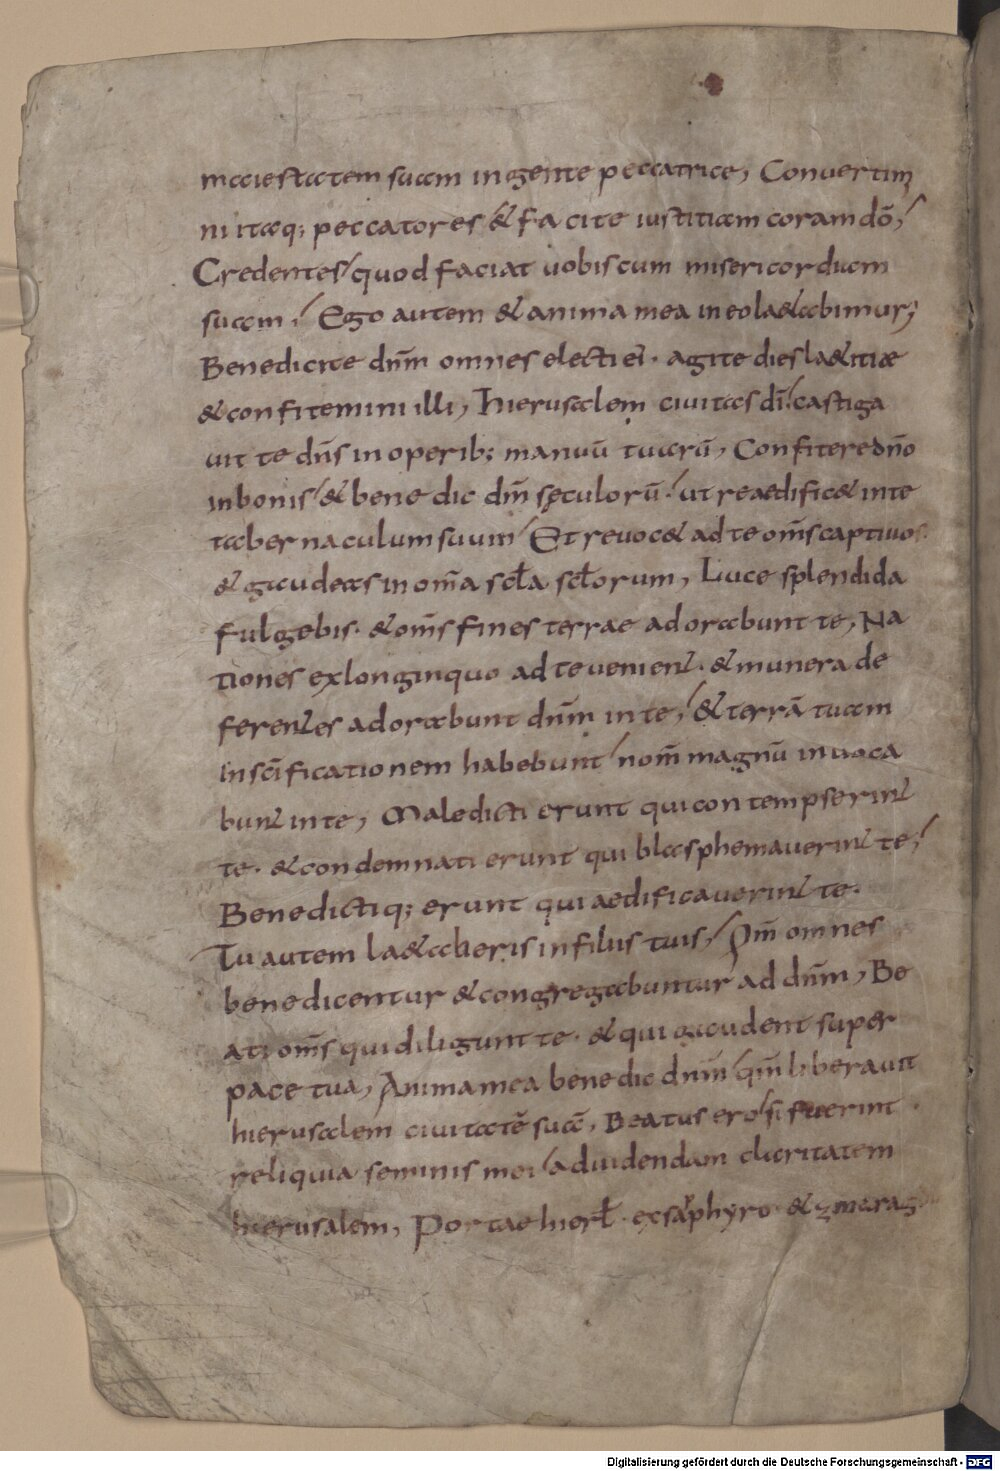 maiestatem suam in gente peccatrice, Convertim
ni itaq; peccatores & facite iustitiam coram dō,
Credentes quod faciat vobiscum misericordiam
suam, Ego autem & anima mea in eo lae&abimur;
Benedicite dn̄m omnes electi ei. agite dies lae&itiae
& confitemini illi, hierusalem civitas dī castiga
vit te dn̄s in operib; manuū tuarū, Confitere dn̄o
in bonis & benedic dm̄ sęculorū. ut reaedific& in te
tabernaculum suum Et revoc& ad te om̄s captivos.
& gaudeas in om̄a scl̄a scl̄orum, Luce splendida
fulgebis. & om̄s fines terrae adorabunt te, Na
tiones ex longinquo ad te venient. & munera de
ferentes adorabunt dn̄m in te, & terrā tuam
in scīficationem habebunt nom̄ magnū invoca
bunt in te, Maledicti erunt qui contempserint
te. & condemnati erunt qui blasphemaverint te,
Benedictiq; erunt qui aedificaverint te.
Tu autem lae&aberis in filiis tuis, Qm̄ omnes
benedicentur & congregabuntur ad dn̄m, Be
ati om̄s qui diligunt te. & qui gaudent super
pace tua, Anima mea benedic dn̄m qm̄ liberavit
hierusalem civitatē suā, Beatus ero si fuerint
reliquia seminis mei ad videndam claritatem
hierusalem, Portae hierl̄. ex saphyro & zmarag
Digitalisierung gefördert durch die Deutsche Forschungsgemeinschaft - DFG